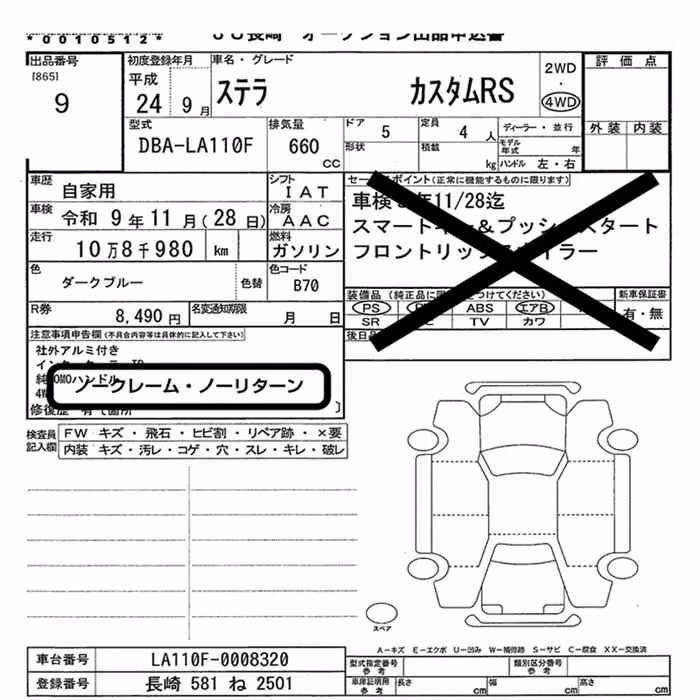 *0010512* JU長崎 オークション出品申込書
出品番号 初度登録年月 車名・グレード 2WD・4WD 評価点
[865] 9 平成 24 9月 ステラ カスタムRS
外装 内装
型式 DBA-LA110F 排気量 660 CC ドア 5 定員 4人 ディーラー・並行
形状 積載 kg モデル年式 年 ハンドル 左・右
車歴 自家用 シフト IAT
セールスポイント(正常に機能するものに限ります)
車検 令和 9年11月(28日) 冷房 AAC
車検 年11/28迄
走行 10万8千980 km 燃料 ガソリン
スマートキー&プッシュスタート
フロントリップスポイラー
色 ダークブルー 色替 色コード B70
装備品(純正品に つけてください) 新車保証書
R券 8,490円 名変通知期限 月 日
PS ABS エアB 有・無
SR TV カワ
後日品
注意事項申告欄(不具合内容等は具体的に記入して下さい)
社外アルミ付き
純 OMOハンドル
ノークレーム・ノーリターン
修復歴 有て箇所
検査員記入欄 FW キズ・飛石・ヒビ割・リペア跡・×要
内装 キズ・汚レ・コゲ・穴・スレ・キレ・破レ
スペア
A-キズ E-エクボ U-凹み W-補修跡 S-サビ C-腐食 XX-交換済
車台番号 LA110F-0008320 型式指定番号 参考 類別区分番号 参考
登録番号 長崎 581 ね 2501 車庫証明用 参考 長さ cm 幅 cm 高さ cm